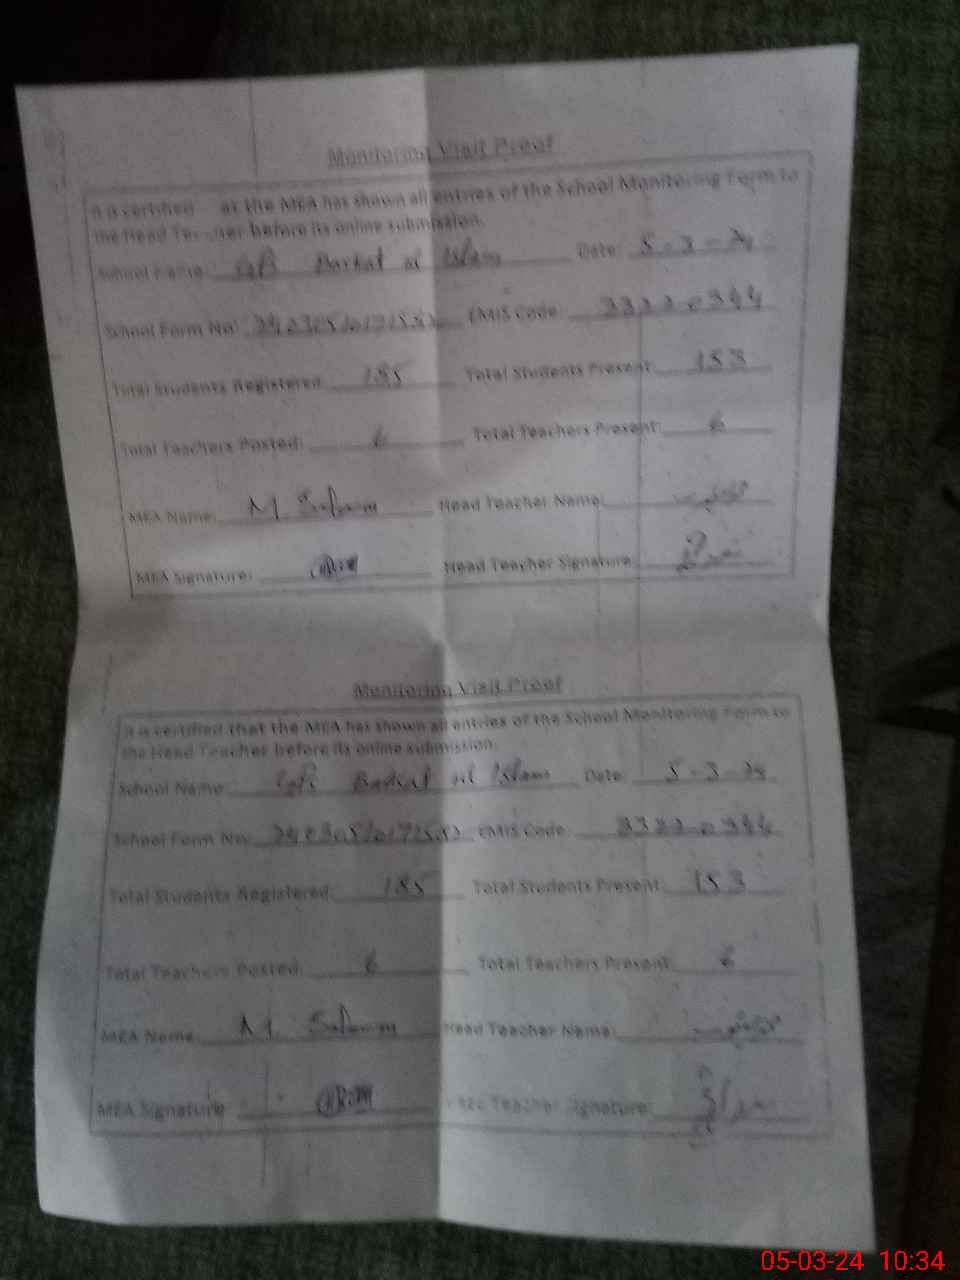 Monitoring Visit Proof
It is certified as the MEA has shown all entries of the School Monitoring Form to
the Head before its online submission.
School Name: Barkat ul Islam Date: 5-3-24
School Form No: EMIS Code:
Total Students Registered: 185 Total Students Present: 153
Total Teachers Posted: 6 Total Teachers Present: 6
MEA Name: M. Head Teacher Name:
MEA Signature: Head Teacher Signature:
Monitoring Visit Proof
It is certified that the MEA has shown all entries of the School Monitoring Form to
the Head Teacher before its online submission.
School Name: Barkat ul Islam Date: 5-3-24
School Form No: EMIS Code:
Total Students Registered: 185 Total Students Present: 153
Total Teachers Posted: 6 Total Teachers Present: 6
MEA Name: M. Head Teacher Name:
MEA Signature: Teacher Signature:
05-03-24 10:34